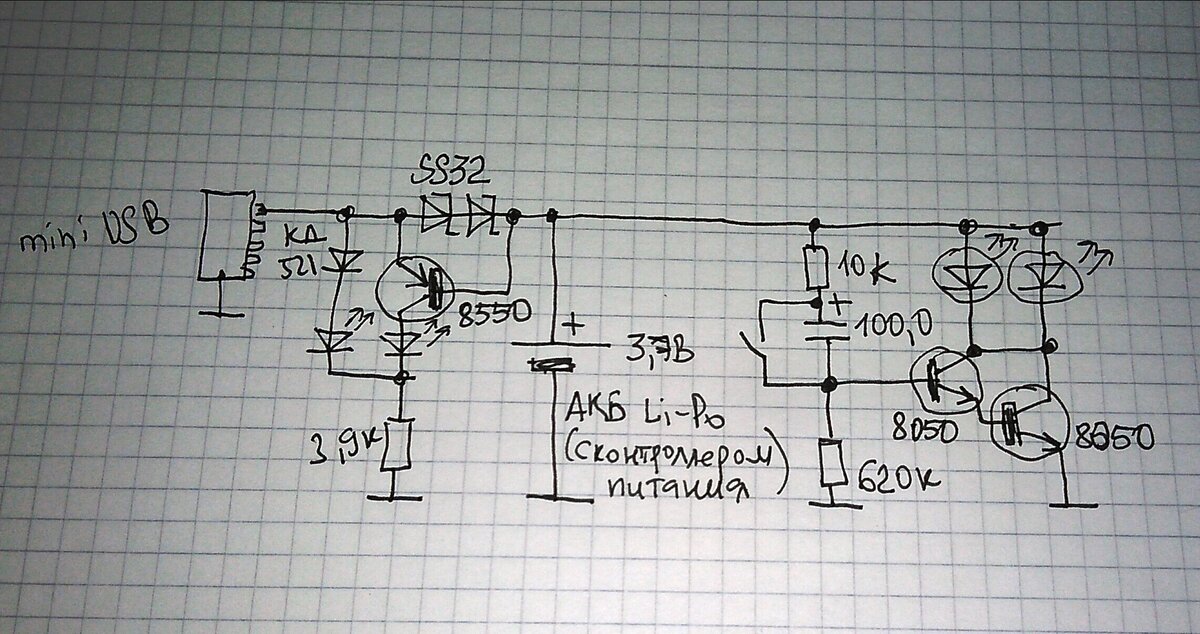 SS32
mini USB
КД
521
8550
10к
+
100,0
+
3,7В
3,9к
АКБ Li-Po
(с контроллером
питания)
8050
8050
620к